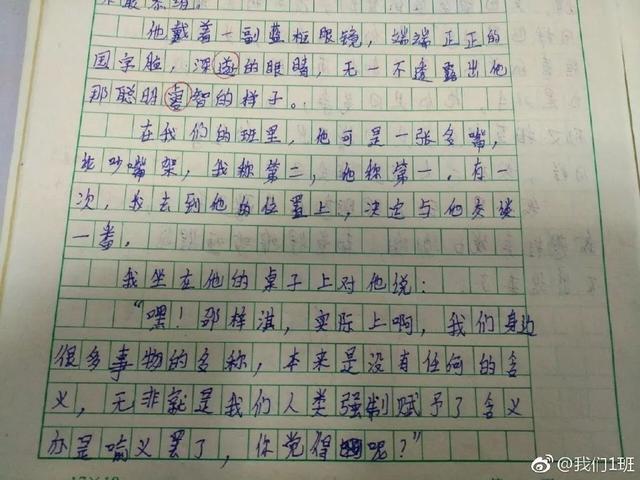 他戴着一副蓝框眼镜，端端正正的
国字脸，深邃的眼睛，无一不透露出他
那聪明睿智的样子。
在我们的班里，他可是一张名嘴，
比吵嘴架，我称第二，他称第一。有一
次，我去到他的位置上，决定与他交谈
一番。
我坐在他的桌子上对他说：
“嘿！邵梓淇，实际上啊，我们身边
很多事物的名称，本来是没有任何的含
义，无非就是我们人类强制赋予了含义
亦是喻义罢了，你觉得呢？”
@我们1班